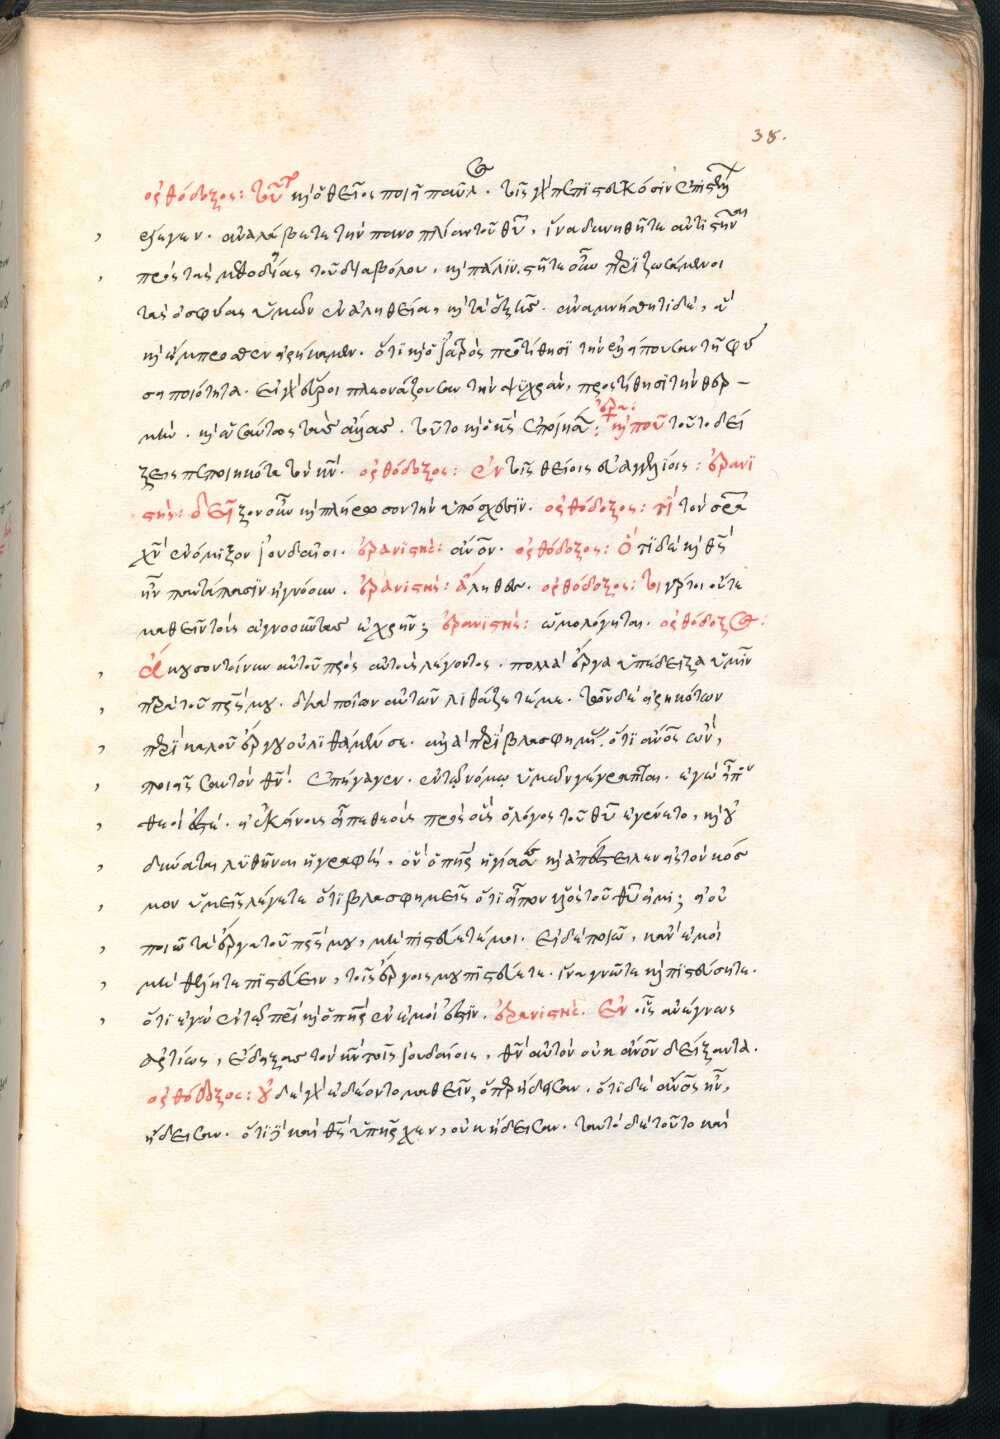 38.
ὀρθόδοξος: τοῦτο καὶ ὁ θεῖος ποιεῖ παῦλος. τοῖς γὰρ πεπιστευκόσιν ἐπιστέλλων
ἔλεγεν. ἀναλάβετε τὴν πανοπλίαν τοῦ θῦ, ἵνα δυνηθῆτε ἀντιστῆναι
πρὸς τὰς μεθοδείας τοῦ διαβόλου, καὶ πάλιν. στῆτε οὖν περιζωσάμενοι
τὰς ὀσφύας ὑμῶν ἐν ἀληθεία, καὶ τὰ ἑξῆς. ἀναμνήσθητι δὲ, ἃ
καὶ ἔμπροσθεν εἰρήκαμεν. ὅτι καὶ ὁ ἰατρὸς προστίθησι τὴν ἐλλείπουσαν τῆ φύ
σει ποιότητα. εἰ γὰρ εὕροι πλεονάζουσαν τὴν ψύχραν, προστίθησι τὴν θερ-
μὴν. καὶ ὡσαύτως τὰς ἄλλας. τοῦτο καὶ ὁ κς ἐποίησεν: ἐρα: καὶ ποῦ τοῦτο δεί
ξεις πεποιηκότα τὸν κν. ὀρθόδοξος: ἐν τοῖς θείοις εὐαγγελίοις: ἐρανι
στής: δεῖξον οὖν καὶ πλήρωσον τὴν ὑπόσχεσιν. ὀρθόδοξος: τί τὸν σρα
χν ἐνόμιζον ἰουδαῖοι. ἐρανιστής: ἄνον. ὀρθόδοξος: Ὅτι δὲ καὶ θς
ἦν παντάπασιν ἠγνόουν. ἐρανιστής: ἀληθῶς. ὀρθόδοξος: τοιγάρτοι οὖτε
μαθεῖν τοὺς ἀγνοοῦντας ἐχρῆν; ἐρανιστής: ὡμολόγηται. ὀρθόδοξος:
ἄκουσον τοίνυν αὐτοῦ πρὸς αὐτοὺς λέγοντος. πολλὰ ἔργα ὑπέδειξα ὑμῖν
παρὰ τοῦ πρς μου. διὰ ποῖον αὐτῶν λιθάζετέ με. τῶν δὲ εἰρηκότων
περὶ καλοῦ ἔργου οὐ λιθάζομέν σε. ἀλλὰ περὶ βλασφημίας. ὅτι ἄνος ὢν,
ποιεῖς σαυτὸν θν. ἐπήγαγεν. ἐν τῶ νόμω ὑμῶν γέγραπται. ἐγὼ εἶπον
θεοί ἐστέ. εἰ ἐκείνους εἶπε θεοὺς πρὸς οὓς ὁ λόγος τοῦ θῦ ἐγένετο, καὶ οὐ
δύναται λυθῆναι ἡ γραφὴ, ὃν ὁ πης ἡγίασε καὶ ἀπέστειλεν εἰς τὸν κόσ
μον ὑμεῖς λέγετε ὅτι βλασφημεῖς ὅτι εἶπον υἱὸς τοῦ θῦ εἰμι; εἰ οὐ
ποιῶ τὰ ἔργα τοῦ πρς μου, μὴ πιστεύετέ μοι. εἰ δὲ ποιῶ, κἂν ἐμοὶ
μὴ θέλητε πιστεύειν, τοῖς ἔργοις μου πιστεύετε. ἵνα γνῶτε καὶ πιστεύσητε.
ὅτι ἐγὼ ἐν τῶ πρὶ καὶ ὁ πης ἐν ἐμοί ἐστιν. ἐρανιστής. Ἐν οἷς ἀνέγνως
ἀρτίως, ἔδειξας τὸν κν τοῖς ἰουδαίοις, θν αὑτὸν οὐκ ἄνον δείξαντα.
ὀρθόδοξος: οὐδὲ γὰρ ἐδέοντο μαθεῖν, ὅπερ ἤδεισαν. ὅτι δὲ ἄνος ἦν,
ἤδεισαν. ὅτι δὲ καὶ θς ὑπῆρχεν, οὐκ ἤδεισαν. ταυτὸ δὲ τοῦτο καὶ